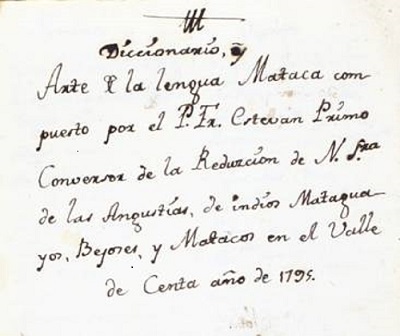 III
Diccionario, y
Arte de la lengua Mataca com
puesto por el P. Fr. Estevan Primo
Conversor de la Reduccion de N. Sra
de las Angustias, de indios Matagua-
yos, Bejoses, y Matacos en el Valle
de Centa año de 1795.